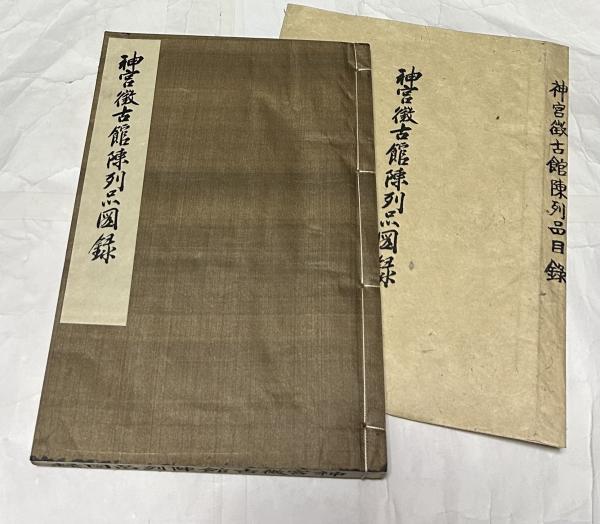 神宮徴古館陳列品図録
神宮徴古館陳列品図録
神宮徴古館陳列品目録
神宮徴古館陳列品図録